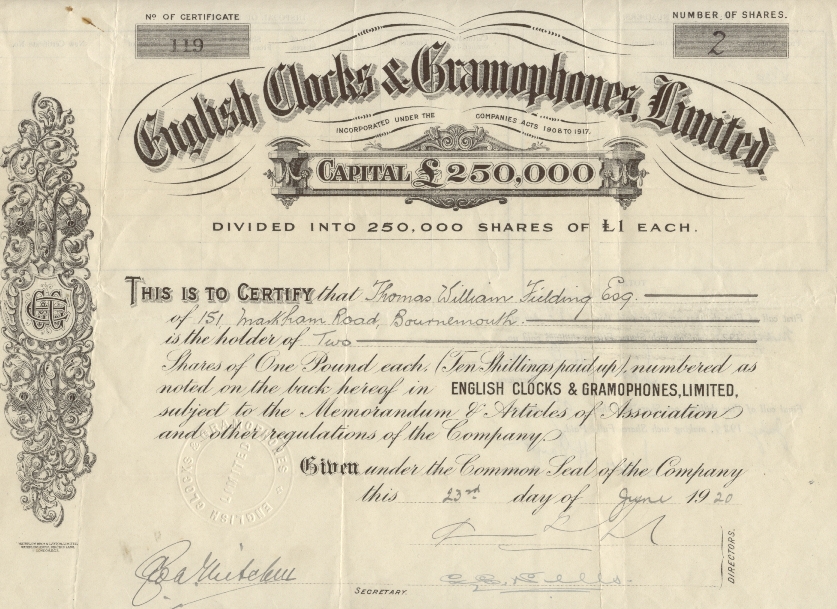 No OF CERTIFICATE
119
NUMBER OF SHARES.
2
English Clocks & Gramophones, Limited
INCORPORATED UNDER THE COMPANIES ACTS 1908 TO 1917.
CAPITAL £250,000
DIVIDED INTO 250,000 SHARES OF £1 EACH.
THIS IS TO CERTIFY that Thomas William Fielding Esq.
of 151, Markham Road, Bournemouth.
is the holder of Two
Shares of One Pound each, (Ten Shillings paid up), numbered as
noted on the back hereof in ENGLISH CLOCKS & GRAMOPHONES, LIMITED,
subject to the Memorandum & Articles of Association
and other regulations of the Company.
ENGLISH CLOCKS & GRAMOPHONES LIMITED
Given under the Common Seal of the Company
this 23rd day of June 1920
DIRECTORS.
SECRETARY.